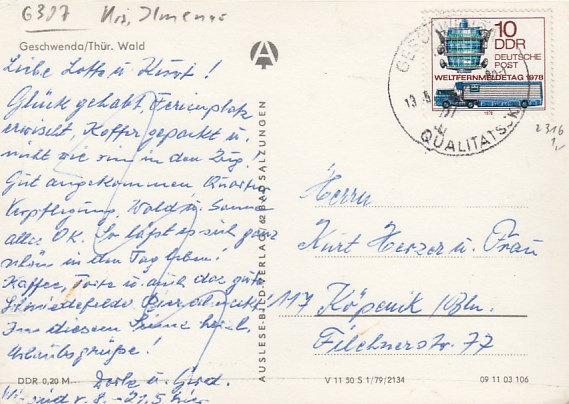 6307 Krs. Ilmenau
Geschwenda/Thür. Wald
Liebe Lotte u. Kurt!
Glück gehabt, Ferienplatz
erwischt, Koffer gepackt u.
nicht wie rin in den Zug.
Gut angekommen, Quartier
Verpflegung, Wald u. Sonne
alles OK. So läßt es sich ganz
schön in den Tag leben!
Kaffee, Torte u. auch das gute
Schmiedefelder Bier schmeckt!
In diesem Sinne herzl.
Urlaubsgrüße!
Dorle u. Gerd.
sind v. 8. - 21.5 hier
DDR 0,20 M
AUSLESE-BILD-VERLAG 62 BAD SALZUNGEN
10
DDR
DEUTSCHE
POST
WELTFERNMELDETAG 1978
GESCHWENDA
QUALITÄTS
2316
1,-
Herrn
Kurt Herzer u. Frau
117 Köpenik/Bln.
Filehnerstr. 77
V 11 50 S 1/79/2134
09 11 03 106